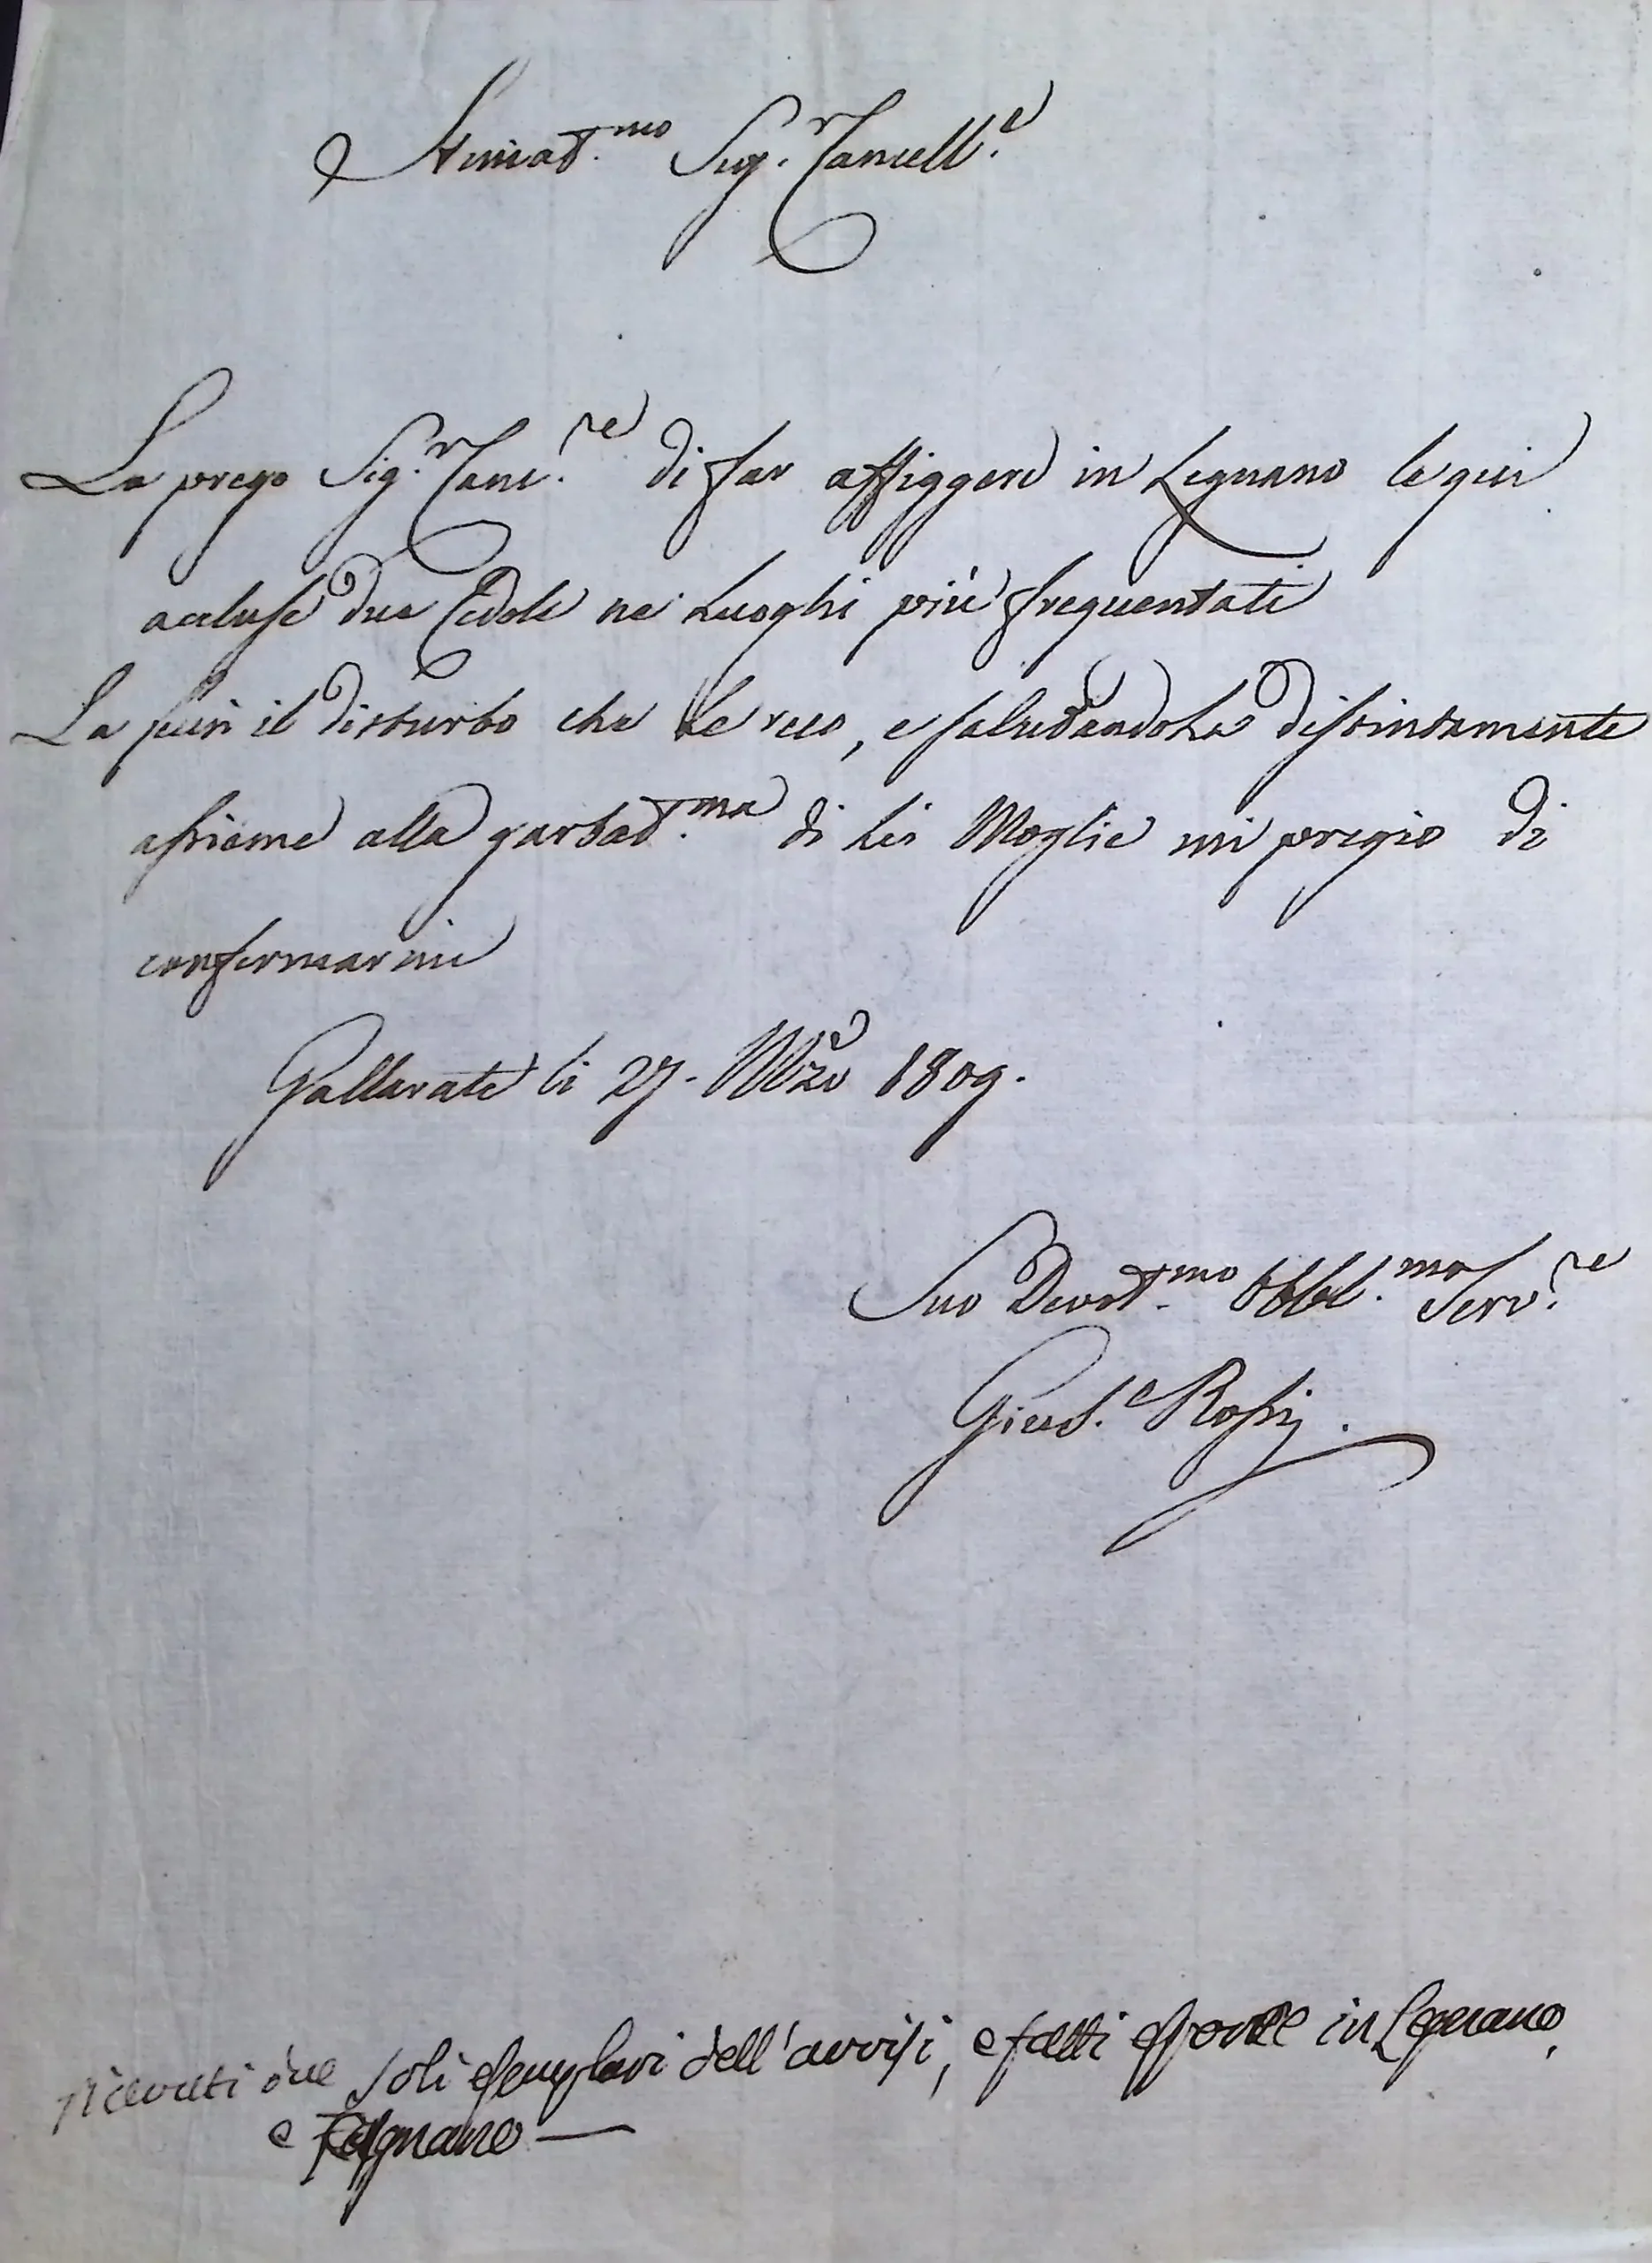 Stimat.mo Sig.r Cancell.e
La prego Sig.r Canc.re di far affiggere in Legnano le qui
accluse due Cedole ne' Luoghi più frequentati
La scusi il disturbo che Le reco, e salutandola distintamente
assieme alla garbat.ma di Lei Moglie mi pregio di
confermarmi
Gallarate li 27. Mzo 1809.
Suo Devot.mo Obbl.mo Serv.re
Gius.e Rossi.
ricevuti due soli esemplari dell'avvisi, e fatti esporre in Legnano,
e